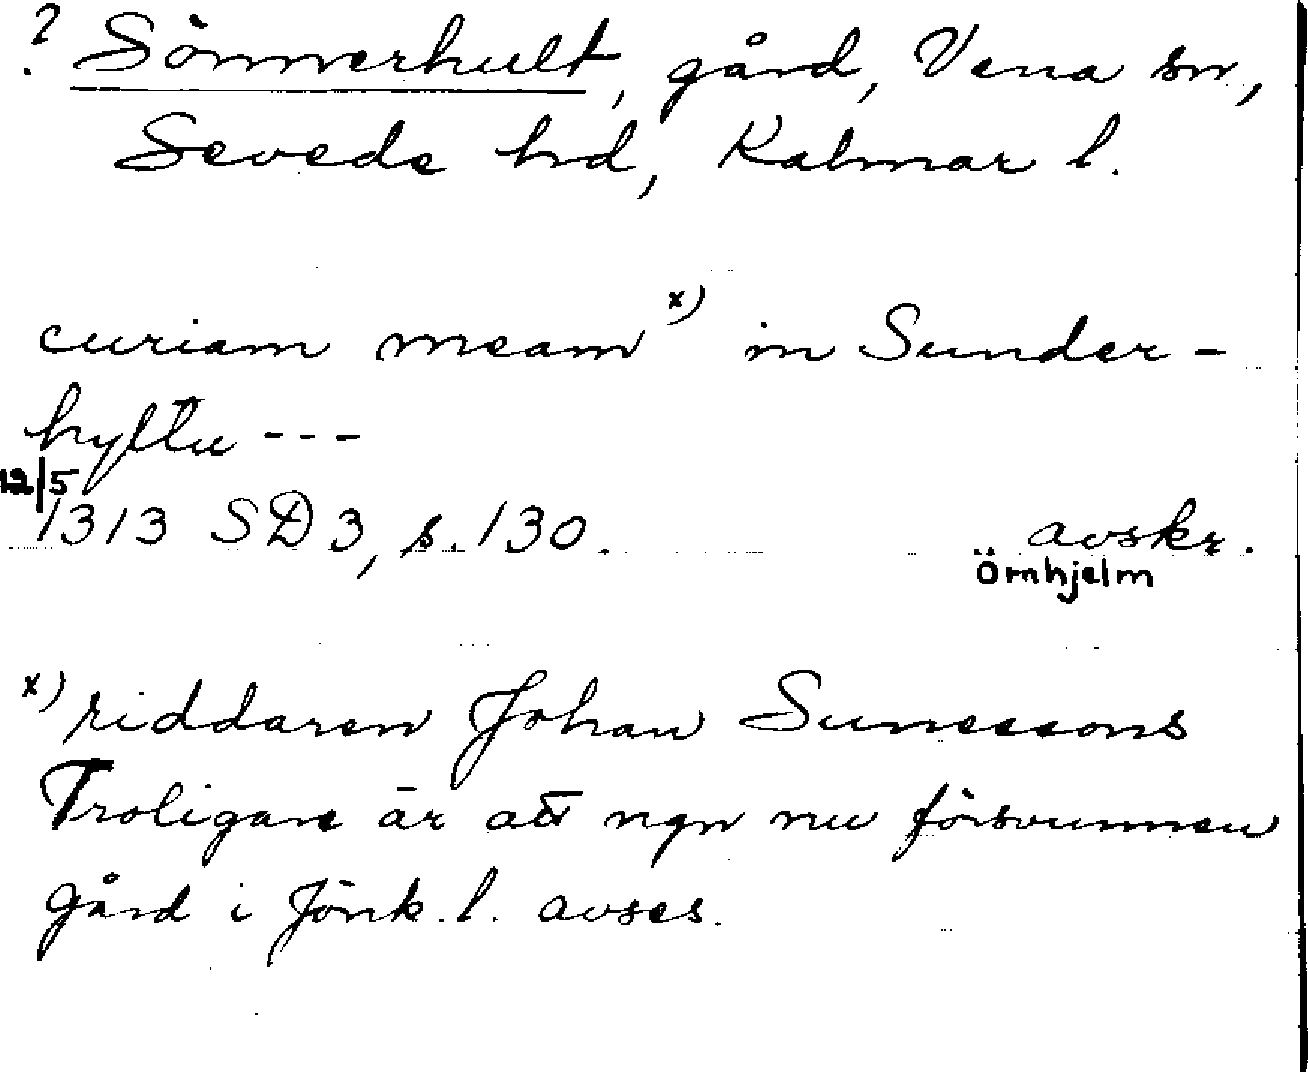 ? Sönnerhult, gård, Vena sn,
Sevede hd, Kalmar l.
curiam meam x) in Sunder-
hyltu ---
12/5
1313 SD 3, s. 130. avskr.
Örnhjelm
x) riddaren Johan Sunessons
Troligare är att ngn nu försvunnen
gård i Jönk. l. avses.